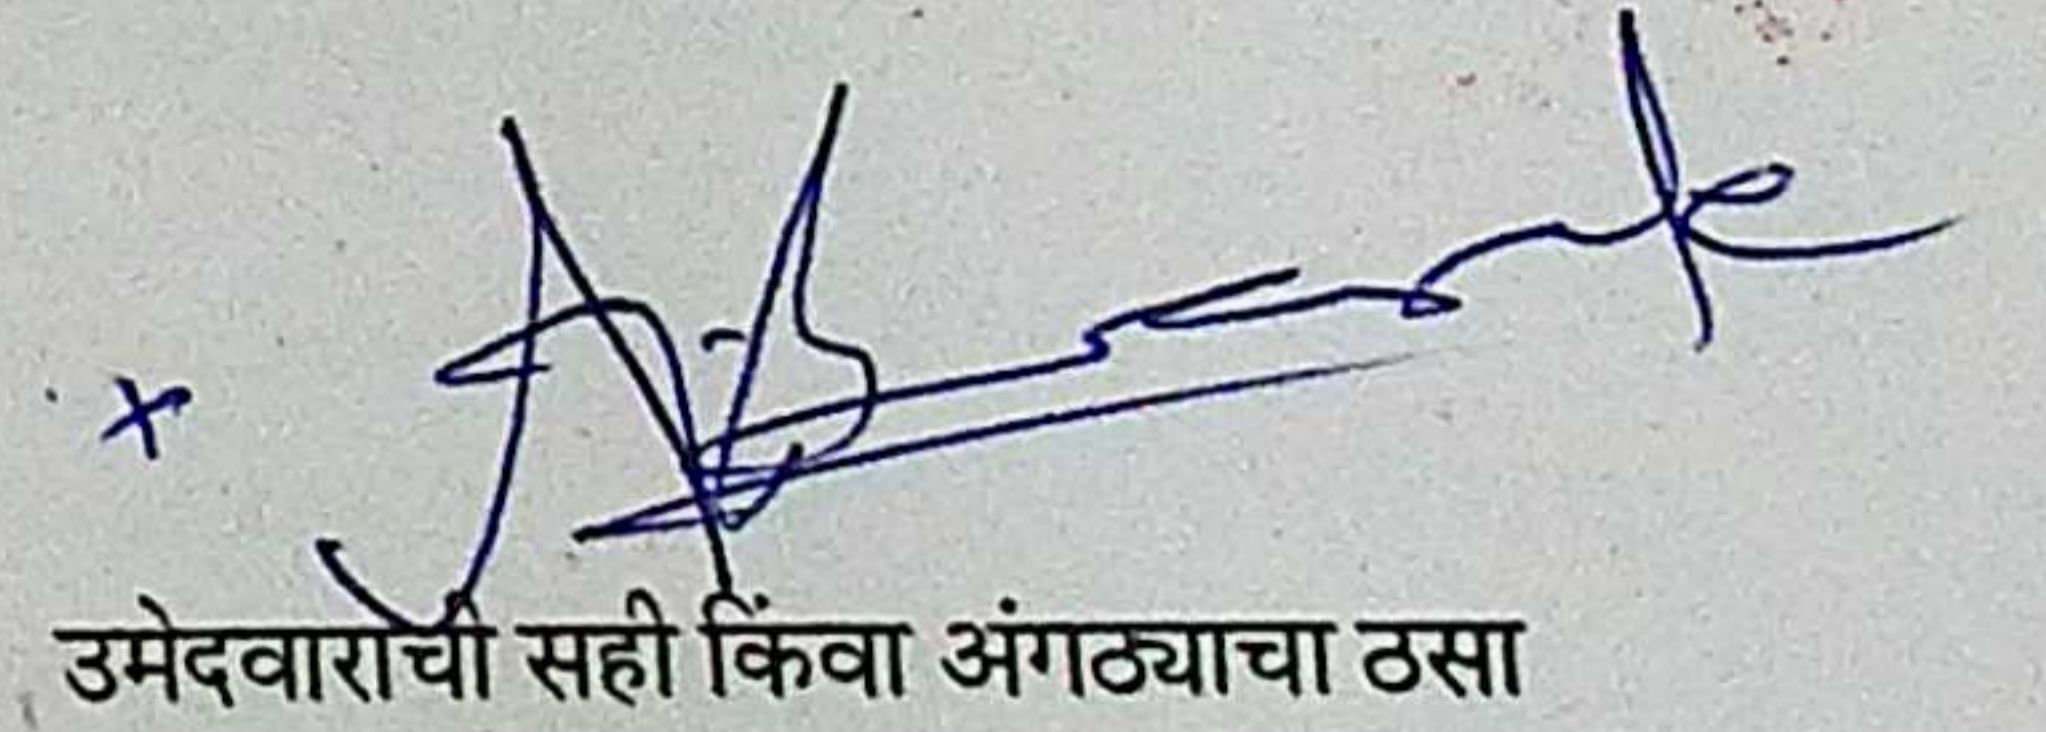 x
उमेदवाराची सही किंवा अंगठ्याचा ठसा